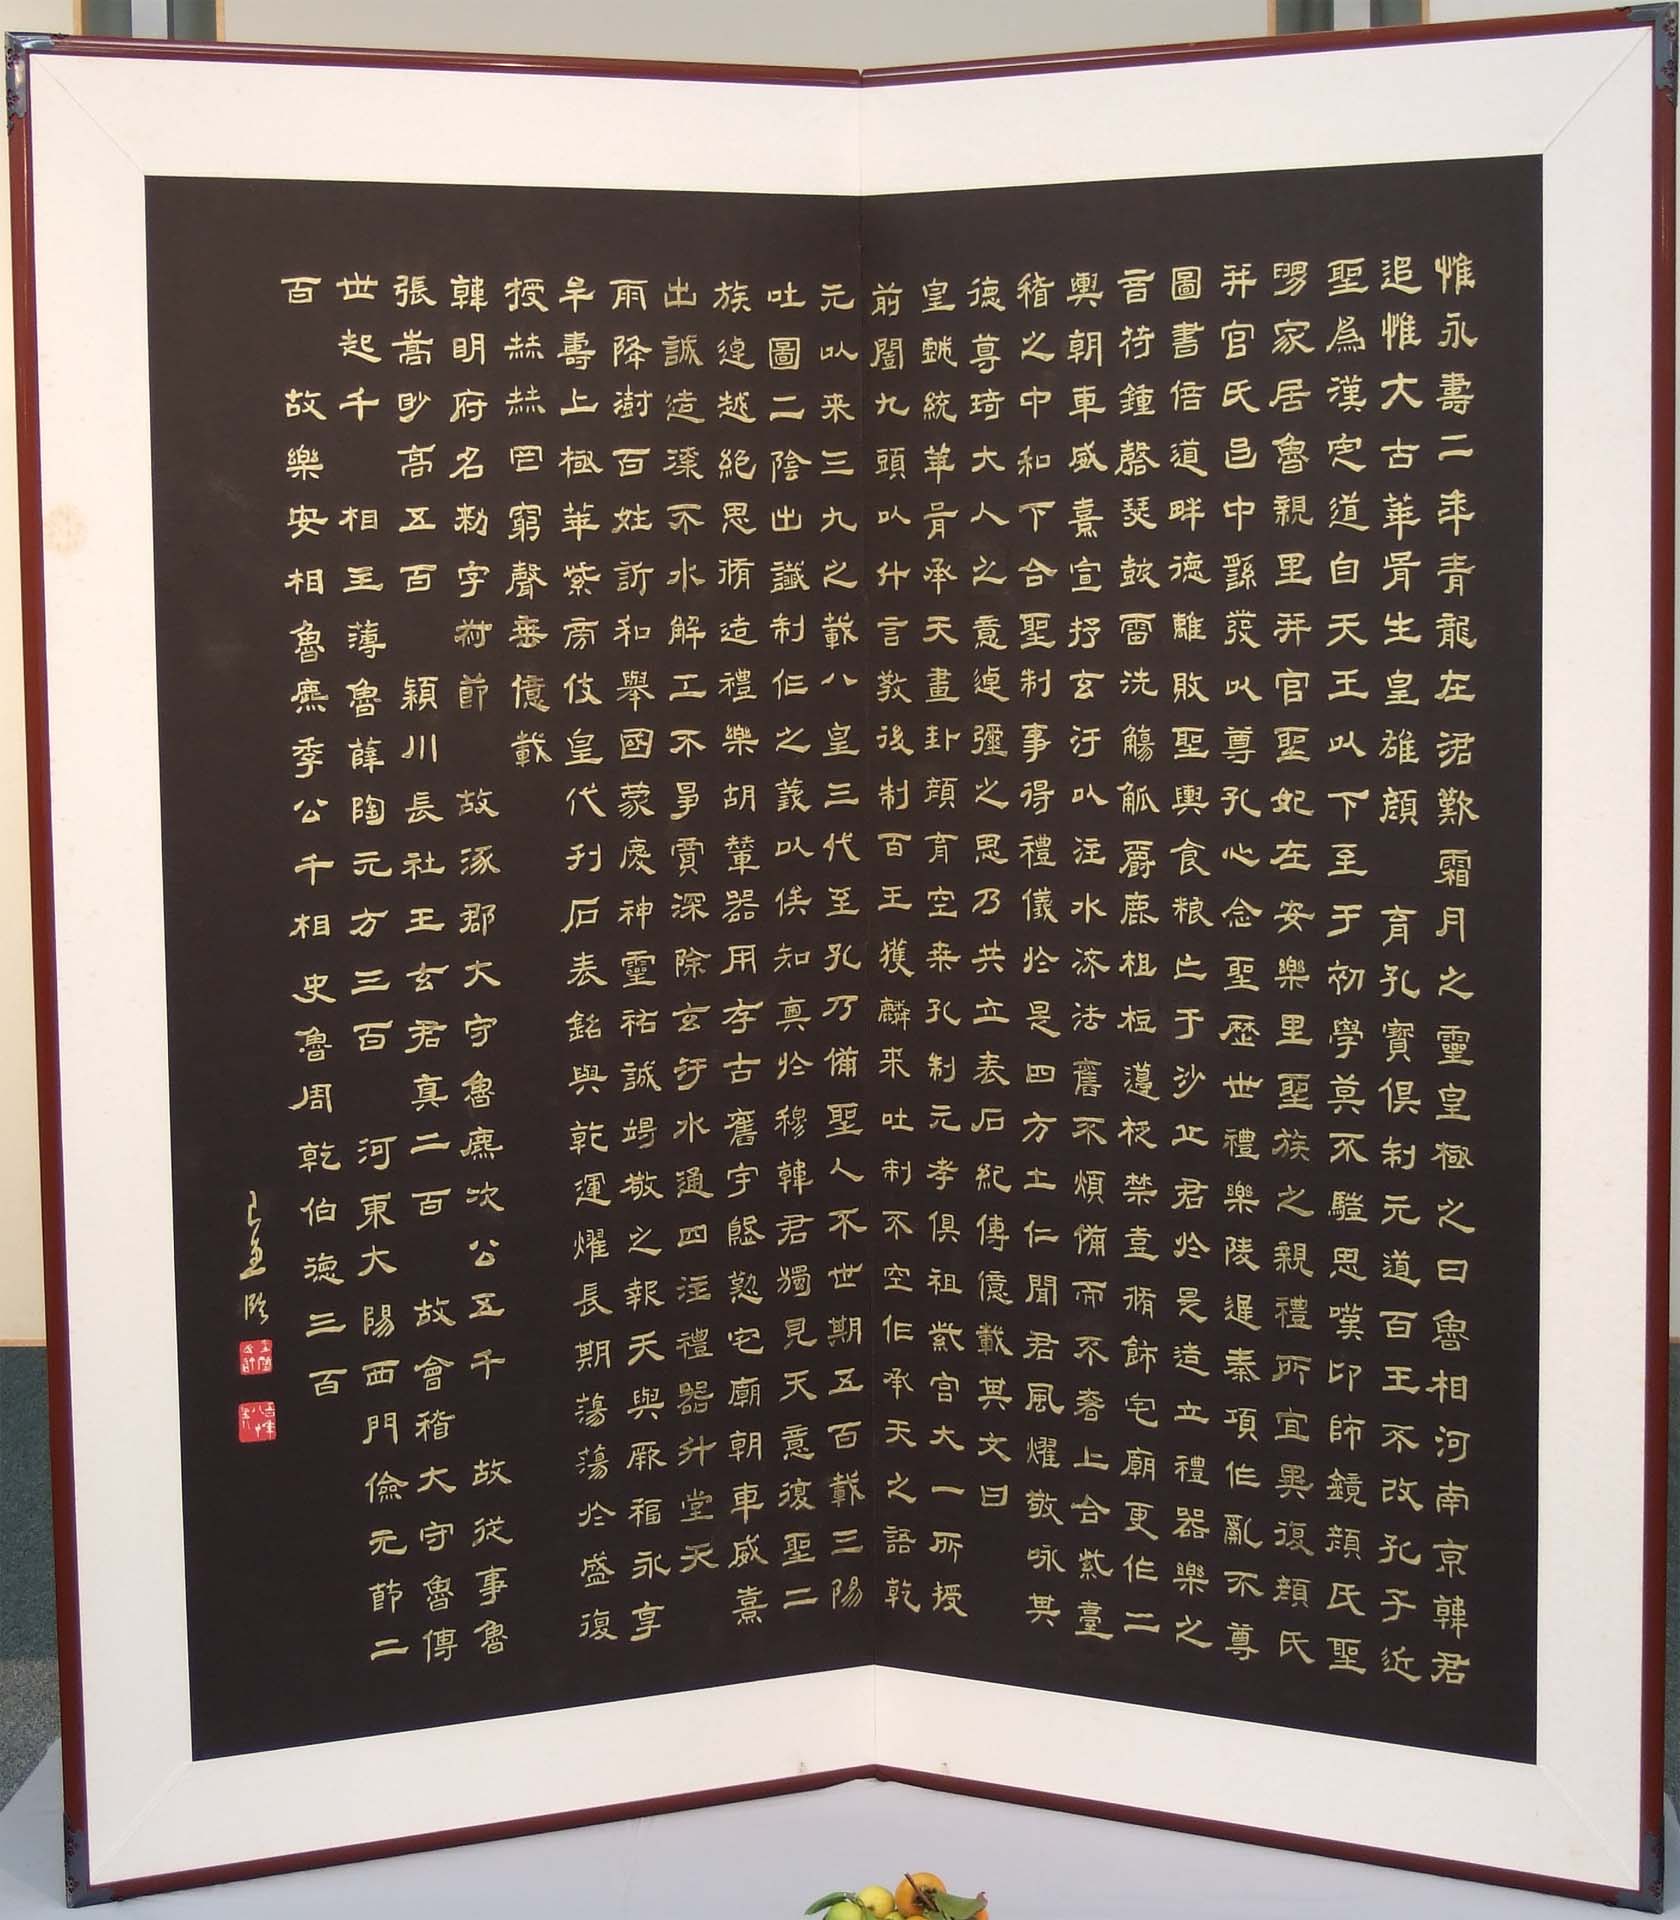 惟永壽二年青龍在涒歎霜月之靈皇極之日魯相河南京韓君
追惟大古華胥生皇雄顏 育孔寶俱制元道百王不改孔子近
聖為漢定道自天王以下至于初學莫不驥思嘆卬師鏡顏氏聖
舅家居魯親里并官聖妃在安樂里聖族之親禮所宜異復顏氏
并官氏邑中繇發以尊孔心念聖歷世禮樂陵遲秦項作亂不尊
圖書倍道畔德離敗聖輿食糧亡于沙丘君於是造立禮器樂之
音符鐘磬瑟鼓雷洗觴觚爵鹿柤梪籩柉禁壹脩飾宅廟更作二
輿朝車威熹宣抒玄汙以注水流法舊不煩備而不奢上合紫臺
稽之中和下合聖制事得禮儀於是四方土仁聞君風燿敬咏其
德尊琦大人之意逴彌之思乃共立表石紀傳億載其文曰
皇戲統華胥承天畫卦顏育空桑孔制元孝俱祖紫宮大一所授
前闓九頭以什言教後制百王獲麟来吐制不空作承天之語乾
元以来三九之載八皇三代至孔乃備聖人不世期五百載三陽
吐圖二陰出讖制作之義以俟知奧於穆韓君獨見天意復聖二
族逴越絕思脩造禮樂胡輦器用存古舊宇慇懃宅廟朝車威熹
出誠造不水解工不爭賈深除玄汙水通四注禮器升堂天
雨降澍百姓訢和舉國蒙慶神靈祐誠竭敬之報天與厥福永享
牟壽上極華紫旁伎皇代刊石表銘與乾運燿長期蕩蕩於盛復
授赫赫罔窮聲垂億載
韓明府名勑字叔節 故涿郡大守魯麃次公五千 故從事魯
張嵩眇高五百 潁川長社王玄君真二百 故會稽大守魯傳
世起千 相主薄魯薛陶元方三百 河東大陽西門儉元節二
百 故樂安相魯麃季公千 相史魯周乾伯德三百